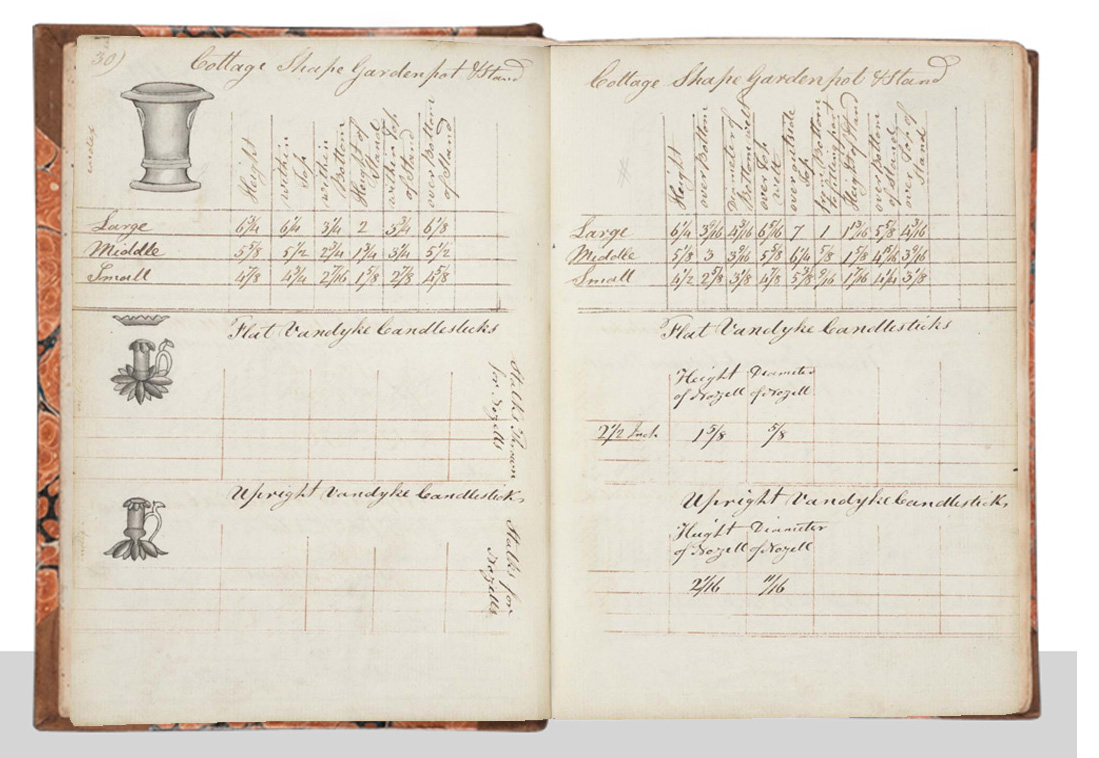 30)
Cottage Shape Gardenpot & Stand
index
Height
within Top
within Bottom
Height of Stand
within Top of Stand
over Bottom of Stand
Large 6 3/4 6 1/4 3 1/4 2 5 3/4 6 1/8
Middle 5 5/8 5 1/2 2 3/4 1 3/4 3 1/4 5 1/2
Small 4 7/8 4 3/4 2 7/16 1 5/8 2 7/8 4 5/8
Flat Vandyke Candlesticks
Stalks Thrown
for Nozells
Upright Vandyke Candlesticks
Stalks for
Nozells
Cottage Shape Gardenpot & Stand
Height
over Bottom
Diameter of Bottom
over Top
over outside Top
from Bottom
Height of Stand
over Bottom of Stand
over Top of Stand
Large 6 1/4 3 9/16 4 3/16 6 5/16 7 1 1 13/16 5 5/8 4 3/16
Middle 5 1/8 3 3 9/16 5 5/8 6 1/4 7/8 1 5/8 4 15/16 3 9/16
Small 4 1/2 2 5/8 3 1/8 4 7/8 5 3/8 9/16 1 7/16 4 1/4 3 1/8
Flat Vandyke Candlesticks
Height Diameter
of Nozell of Nozell
2 1/2 Inch 1 5/8 5/8
Upright Vandyke Candlesticks
Height Diameter
of Nozell of Nozell
2 1/16 11/16